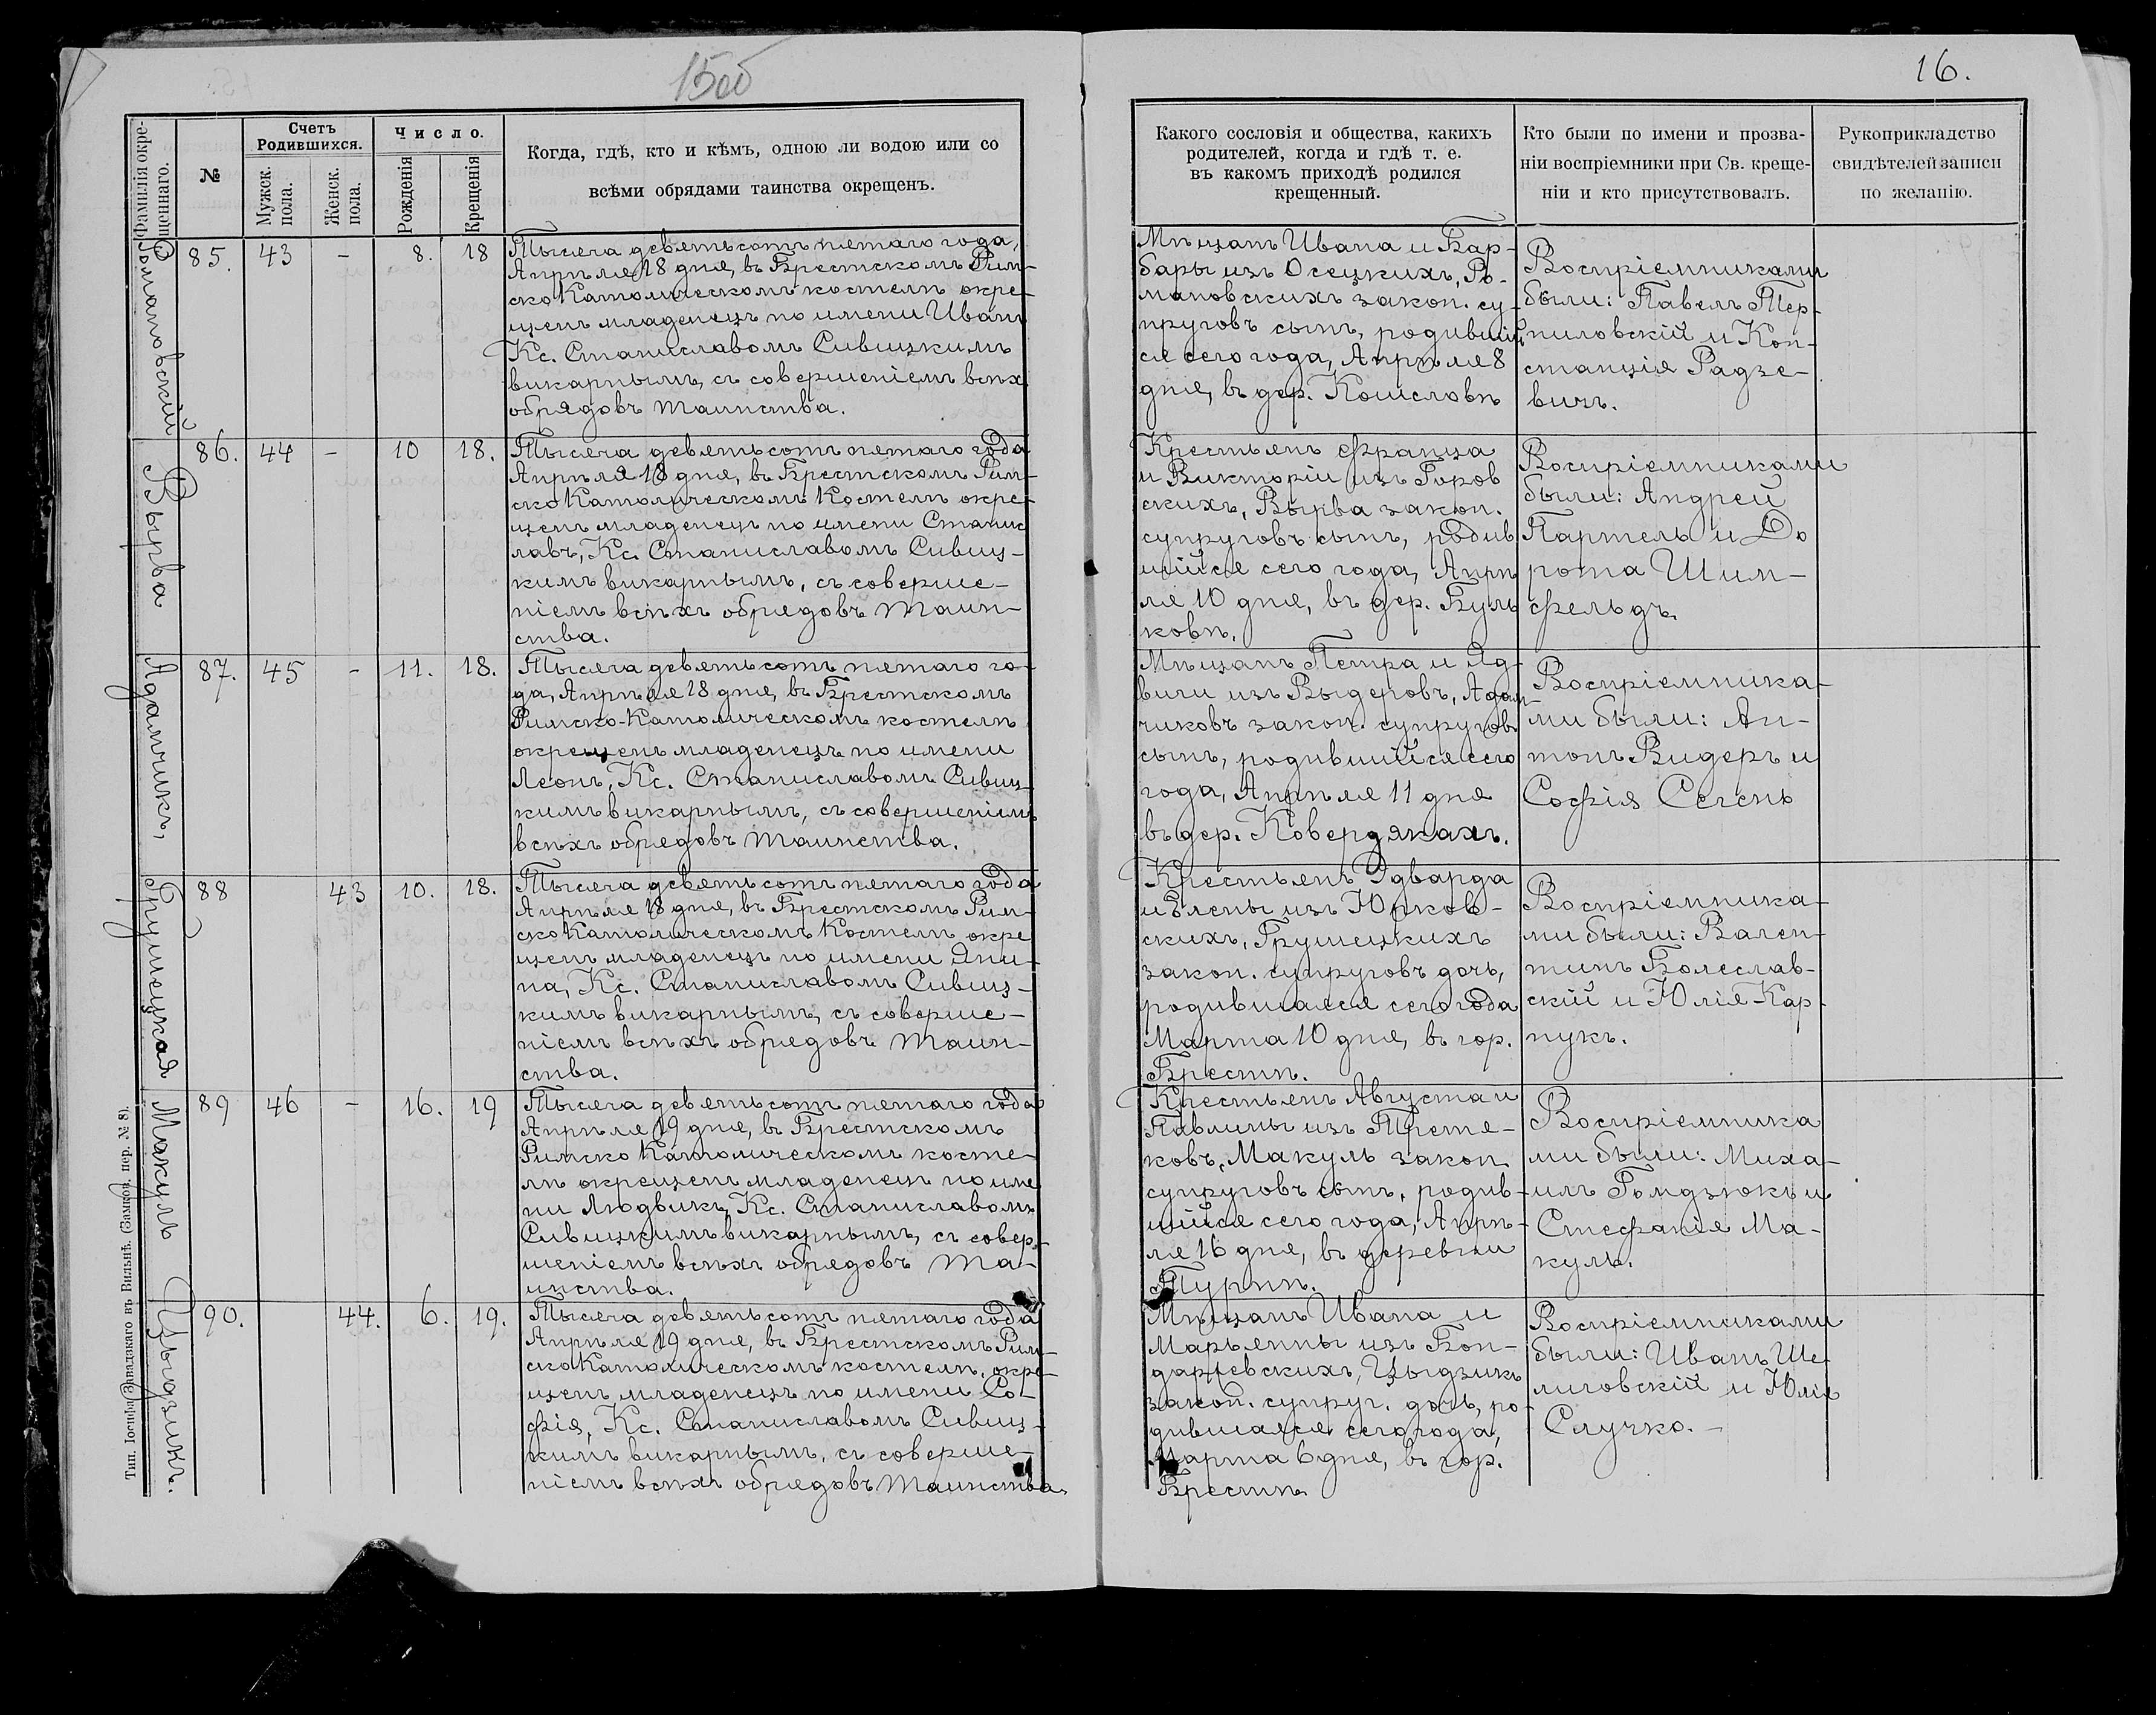 15об
16.
Фамилія окре-
щеннаго.
№
Счетъ
Родившихся.
Мужск.
пола.
Женск.
пола.
Число.
Рожденія
Крещенія
Когда, гдѣ, кто и кѣмъ, одною ли водою или со
всѣми обрядами таинства окрещенъ.
Какого сословія и общества, какихъ
родителей, когда и гдѣ т. е.
въ какомъ приходѣ родился
крещенный.
Кто были по имени и прозва-
ніи воспріемники при Св. креще-
ніи и кто присутствовалъ.
Рукоприкладство
свидѣтелей записи
по желанію.
Романовскій
85. 43 - 8. 18
Тысяча девятьсотъ пятаго года,
Апрѣля 18 дня, въ Брестскомъ Рим-
ско Католическомъ костелѣ окре-
щенъ младенецъ по имени Иванъ
Кс. Станиславомъ Сивицкимъ
викарнымъ, съ совершеніемъ всѣхъ
обрядовъ таинства.
Мѣщанъ Ивана и Вар-
бары изъ Осецкихъ, Ро-
мановскихъ закон. су-
пруговъ сынъ, родившій
ся сего года, Апрѣля 8
дня, въ дер. Кошсловѣ
Воспріемниками
были: Павелъ Тер-
пиловскій и Кон-
станція Радзе-
вичъ.
Вырва
86. 44 - 10 18.
Тысяча девятьсотъ пятаго года
Апрѣля 18 дня, въ Брестскомъ Рим-
ско Католическомъ Костелѣ окре-
щенъ младенецъ по имени Станис
лавъ, Кс. Станиславомъ Сивиц-
кимъ викарнымъ, съ соверше-
ніемъ всѣхъ обрядовъ таин-
ства.
Крестьянъ Франца
и Викторіи изъ Горов
скихъ, Вырва закон.
супруговъ сынъ, родив
шійся сего года, Апрѣ
ля 10 дня, въ дер. Буль
ковѣ.
Воспріемниками
были: Андрей
Партель и До
рота Шим-
фельдъ.
Адамчикъ,
87. 45 - 11. 18.
Тысяча девятьсотъ пятаго го-
да, Апрѣля 18 дня, въ Брестскомъ
Римско-Католическомъ костелѣ
окрещенъ младенецъ по имени
Леонъ, Кс. Станиславомъ Сивиц-
кимъ викарнымъ, съ совершеніемъ
всѣхъ обрядовъ таинства.
Мѣщанъ Петра и Яд-
виги изъ Выдеровъ, Адам-
чиковъ закон. супруговъ
сынъ, родившійся сего
года, Апрѣля 11 дня
въ дер. Ковердякахъ.
Воспріемника-
ми были: Ан-
тонъ Видеръ и
Софія Сегень
Грушецкая
88 43 10. 18.
Тысяча девятьсотъ пятаго года
Апрѣля 18 дня, въ Брестскомъ Рим-
ско Католическомъ Костелѣ окре
щенъ младенецъ по имени Яни-
на, Кс. Станиславомъ Сивиц-
кимъ викарнымъ, съ соверше-
ніемъ всѣхъ обрядовъ таин-
ства.
Крестьянъ Эдварда
и Елены изъ Юрков-
скихъ, Грушецкихъ
закон. супруговъ дочь,
родившаяся сего года
Марта 10 дня, въ гор.
Брестѣ.
Воспріемника-
ми были: Вален-
тинъ Болеслав-
скій и Юлія Кар-
пукъ.
Макуль
89 46 - 16. 19
Тысяча девятьсотъ пятаго года
Апрѣля 19 дня, въ Брестскомъ
Римско Католическомъ косте-
лѣ окрещенъ младенецъ по име
ни Людвикъ, Кс. Станиславомъ
Сивицкимъ викарнымъ, съ совер-
шеніемъ всѣхъ обрядовъ та-
инства.
Крестьянъ Августа и
Павлины изъ Третя-
ковъ, Макуль закон
супруговъ сынъ, родив-
шійся сего года, Апрѣ-
ля 16 дня, въ деревни
Турнѣ.
Воспріемника
ми были: Миха-
илъ Гомдзюкъ и
Стефанія Ма-
куль.
Цыдзикъ.
90. 44. 6. 19.
Тысяча девятьсотъ пятаго года
Апрѣля 19 дня, въ Брестскомъ Рим-
ско Католическомъ костелѣ, окре-
щенъ младенецъ по имени Со-
фія, Кс. Станиславомъ Сивиц-
кимъ викарнымъ, съ соверше-
ніемъ всѣхъ обрядовъ таинства.
Мѣщанъ Ивана и
Марьянны изъ Бон-
даржевскихъ, Цыдзикъ
закон. супруг. дочь, ро-
дившаяся сего года,
Марта 6 дня, въ гор.
Брестѣ
Воспріемниками
были: Иванъ Ше-
лиговскій и Юлія
Случко. -
Тип. Іосифа Завадзкаго въ Вильнѣ. (Замков. пер. № 8).